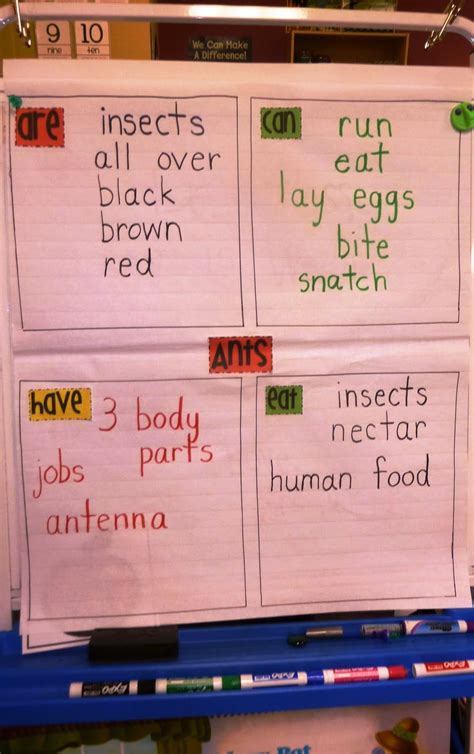 9 10
nine ten
We Can Make
A Difference!
are
insects
all over
black
brown
red
can
run
eat
lay eggs
bite
snatch
ANTS
have
3 body
parts
jobs
antenna
eat
insects
nectar
human food
EXPO
EXPO